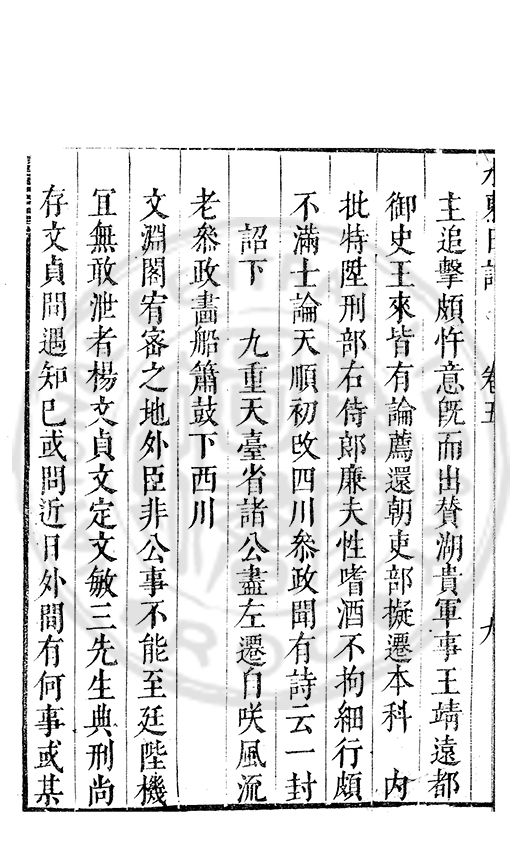 水東日記 卷五 九
主追擊頗忤意旣而出贊湖貴軍事王靖遠都
御史王來皆有論薦還朝吏部擬遷本科 內
批特陞刑部右侍郎廉夫性嗜酒不拘細行頗
不滿士論天順初改四川叅政聞有詩云一封
詔下 九重天臺省諸公盡左遷自咲風流
老叅政畵船簫鼓下西川
文淵閣宥密之地外臣非公事不能至廷陛機
冝無敢泄者楊文貞文定文敏三先生典刑尚
存文貞間遇知已或問近日外間有何事或某